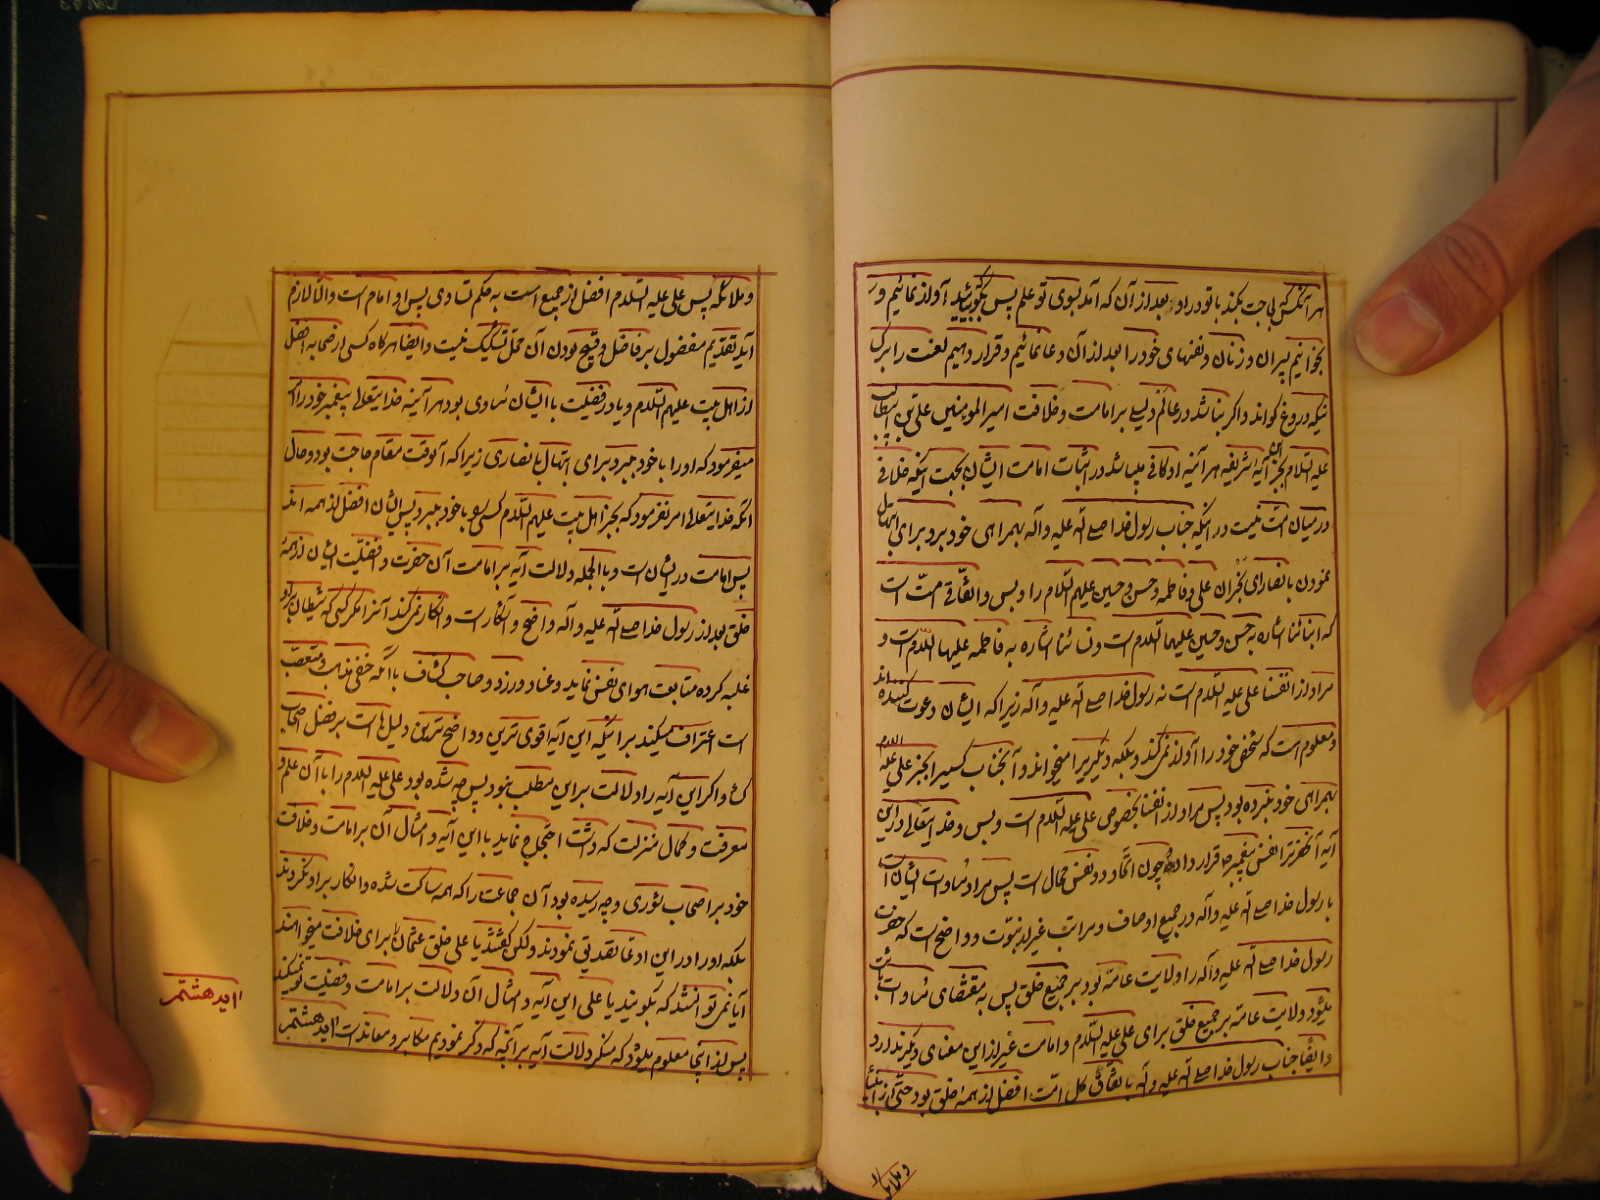 هر آنکس که محاجت بکند با تو در او بعد از آن که آمد بسوی تو علم پس بگو بیائید آواز نمائیم و
بخوانیم پسران و زنان و نفسهای خود را بعد از آن دعا نمائیم و قرار دهیم لعنت را بر
دروغ گو اند و اگر نباشد در عالم دلیلی بر امامت و خلافت امیر المومنین علی بن ابیطالب
علیه السلام بجز این آیه شریفه هر آئینه او کافی میباشد در اثبات امامت ایشان بجهت اینکه خلافی
در میان امت نیست در اینکه جناب رسول خدا صلی الله علیه وآله بهمراهی خود برد برای ابتهال
نمودن با نصارای نجران علی و فاطمه و حسن و حسین علیهم السلام را و بس و اتفاقی امت است
که ابنائنا اشاره به حسن و حسین علیهما السلام است و نسائنا اشاره به فاطمه علیها السلام است و
مراد از انفسنا علی علیه السلام است نه رسول خدا صلی الله علیه وآله زیرا که ایشان دعوت کننده اند
و معلوم است که شخص خود را آواز نمی کند و بلکه دیگریرا میخواند و آنجناب کسیرا بجز علی علیه السلام
بهمراهی خود نبرده بود پس مراد از انفسنا بخصوص علی علیه السلام است و بس و خدایتعالی در این
آیه آنحضرترا نفس پیغمبر قرار داده چون اتحاد دو نفس محال است پس مراد مساوات ایشان است
با رسول خدا صلی الله علیه وآله در جمیع اوصاف و مراتب غیر از نبوت و واضح است که حضرت
رسول خدا صلی الله علیه وآله را ولایت عامه بود بر جمیع خلق پس به مقتضای مساوات ثابت
میشود ولایت عامه بر جمیع خلق برای علی علیه السلام و امامت غیر از این معنای دیگر ندارد
و ایضا جناب رسول خدا صلی الله علیه وآله باتفاق کل امت افضل از همه خلق بود حتی از انبیا
و ملائکه
و ملائکه پس علی علیه السلام افضل از جمیع است به حکم تساوی پس او امام است والا لازم
آید تقدیم مفضول بر فاضل و قبیح بودن آن محل تشکیک نیست و ایضا هر گاه کسی از صحابه افضل
از اهل بیت علیهم السلام و یا در فضیلت با ایشان مساوی بود هر آئینه خدایتعالی پیغمبر خود را امر
میفرمود که او را با خود ببرد برای ابتهال با نصاری زیرا که آنوقت مقام حاجت بود و حال
آنکه خدایتعالی امر نفرمود که بجز اهل بیت علیهم السلام کسی را با خود ببرد پس ایشان افضل از همه اند
پس امامت در ایشان است و بالجمله دلالت آیه بر امامت آن حضرت و افضلیت ایشان از همه
خلق بعد از رسول خدا صلی الله علیه وآله واضح و آشکار است و انکار نمی کند آنرا مگر کسی که شیطان بر او
غلبه کرده متابعت هوای نفس نماید و عناد ورزد و صاحب کشاف با آنکه حنفی مذهب و متعصب
است اعتراف میکند بر اینکه این آیه اقوی ترین و واضح ترین دلیلها است بر فضل اصحاب
کسا و اگر این آیه را دلالت بر این مطلب نبود پس چه شده بود علی علیه السلام را با آن علم و
معرفت و کمال منزلت که داشت احتجاج نماید با این آیه و امثال آن بر امامت و خلافت
خود بر اصحاب شوری و چه رسیده بود آن جماعت را که همه ساکت شده و انکار بر او نکردند
بلکه او را در این ادعا تصدیق نمودند ولکن گفتند یا علی خلق عثمان را برای خلافت میخواهند
آیا نمی توانستند که بگویند یا علی این آیه و امثال آن دلالت بر امامت و فضیلت تو نمیکند
پس از اینجا معلوم میشود که منکر دلالت آیه بر آنچه که ذکر نمودیم مکابر و معاند است آیه هشتم
آیه هشتم